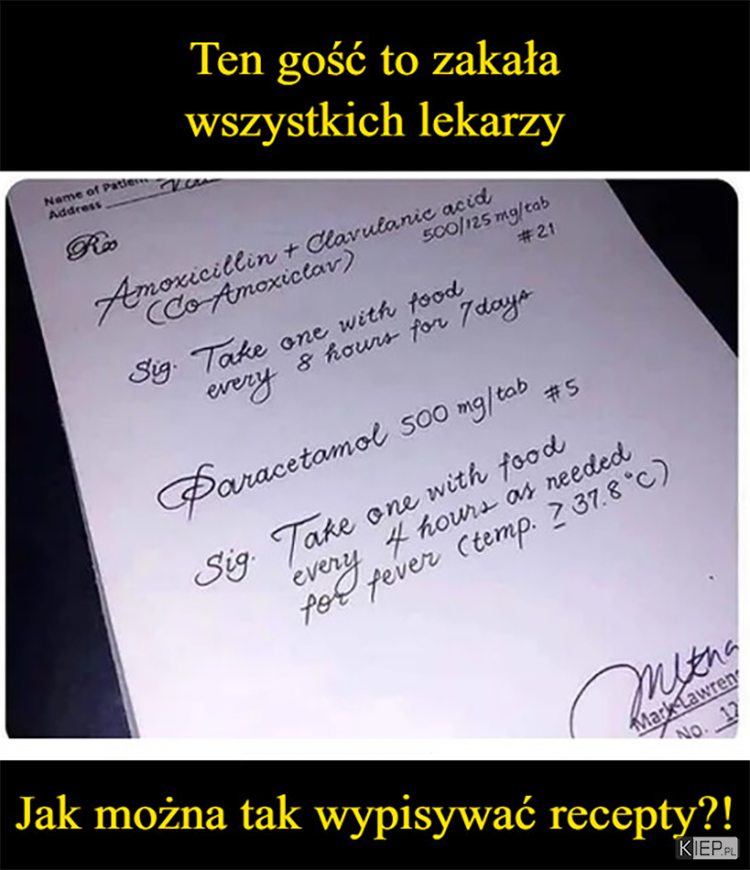 Ten gość to zakała
wszystkich lekarzy
Name of Patient
Address
Rx
Amoxicillin + Clavulanic acid
(Co-Amoxiclav) 500/125 mg/tab
#21
Sig. Take one with food
every 8 hours for 7 days
Paracetamol 500 mg/tab #5
Sig. Take one with food
every 4 hours as needed
for fever (temp. ≥ 37.8 °C)
Mark Lawren
No. 12
Jak można tak wypisywać recepty?!
KIEP.PL